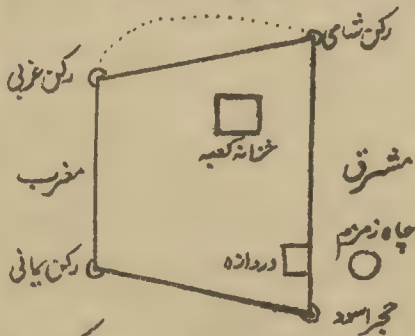 رکن شامی
رکن غربی
خزانہ کعبہ
مشرق
مغرب
چاہ زمزم
دروازہ
رکن یمانی
حجر اسود